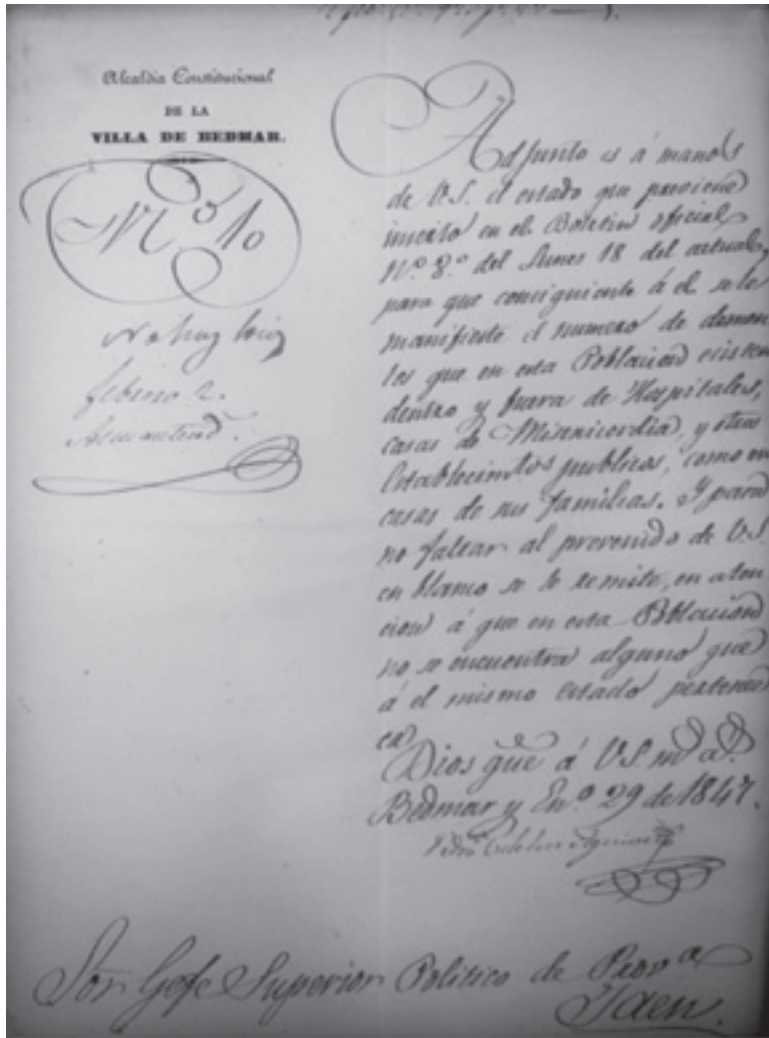 Alcaldía Constitucional
DE LA
VILLA DE BEDMAR.
Nº 10
No hay
febrero 2.
Adjunto es á manos
de V.S. el estado que previene
inserto en el Boletin oficial
Nº 8º del Lunes 18 del actual,
para que consiguiente á el se le
manifieste el numero de demen
tes que en esta Poblacion existen
dentro y fuera de Hospitales,
casas de Misericordia, y otros
Establecimtos publicos, como en
casas de sus familias. Y para
no faltar al prevenido de V.S.
en blanco se le remite, en aten
cion á que en esta Poblacion
no se encuentra alguno que
á el mismo estado pertenez
ca
Dios gûe á V.S. ms as.
Bedmar y Enº 29 de 1847.
Sor Gefe Superior Politico de Prova
Jaen.